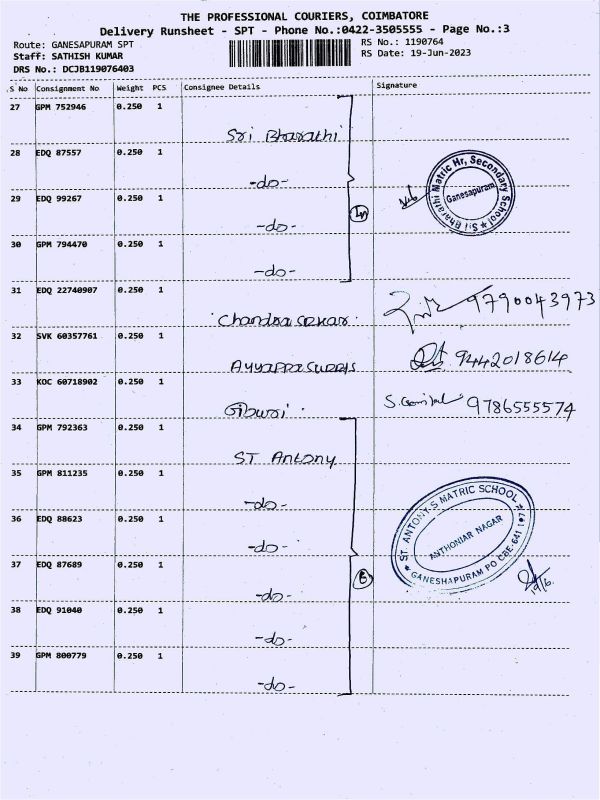 THE PROFESSIONAL COURIERS, COIMBATORE
Delivery Runsheet - SPT - Phone No.:0422-3505555 - Page No.:3
Route: GANESAPURAM SPT
RS No.: 1190764
Staff: SATHISH KUMAR
RS Date: 19-Jun-2023
DRS No.: DCJB119076403
S No Consignment No Weight PCS Consignee Details Signature
27 GPM 752946 0.250 1
Sri Bharathi
28 EDQ 87557 0.250 1
-do-
29 EDQ 99267 0.250 1
-do-
30 GPM 794470 0.250 1
-do-
Sri Bharathi Matric Hr, Secondary School
Ganesapuram
31 EDQ 22740907 0.250 1
Chandrasekar 9790043973
32 SVK 60357761 0.250 1
9442018614
33 KOC 60718902 0.250 1
9786555574
34 GPM 792363 0.250 1
ST Antony
35 GPM 811235 0.250 1
-do-
36 EDQ 88623 0.250 1
-do-
37 EDQ 87689 0.250 1
-do-
38 EDQ 91040 0.250 1
-do-
39 GPM 800779 0.250 1
-do-
6
ST. ANTONY'S MATRIC SCHOOL
ANTHONIAR NAGAR
GANESHAPURAM PO CBE-641 107
19/6